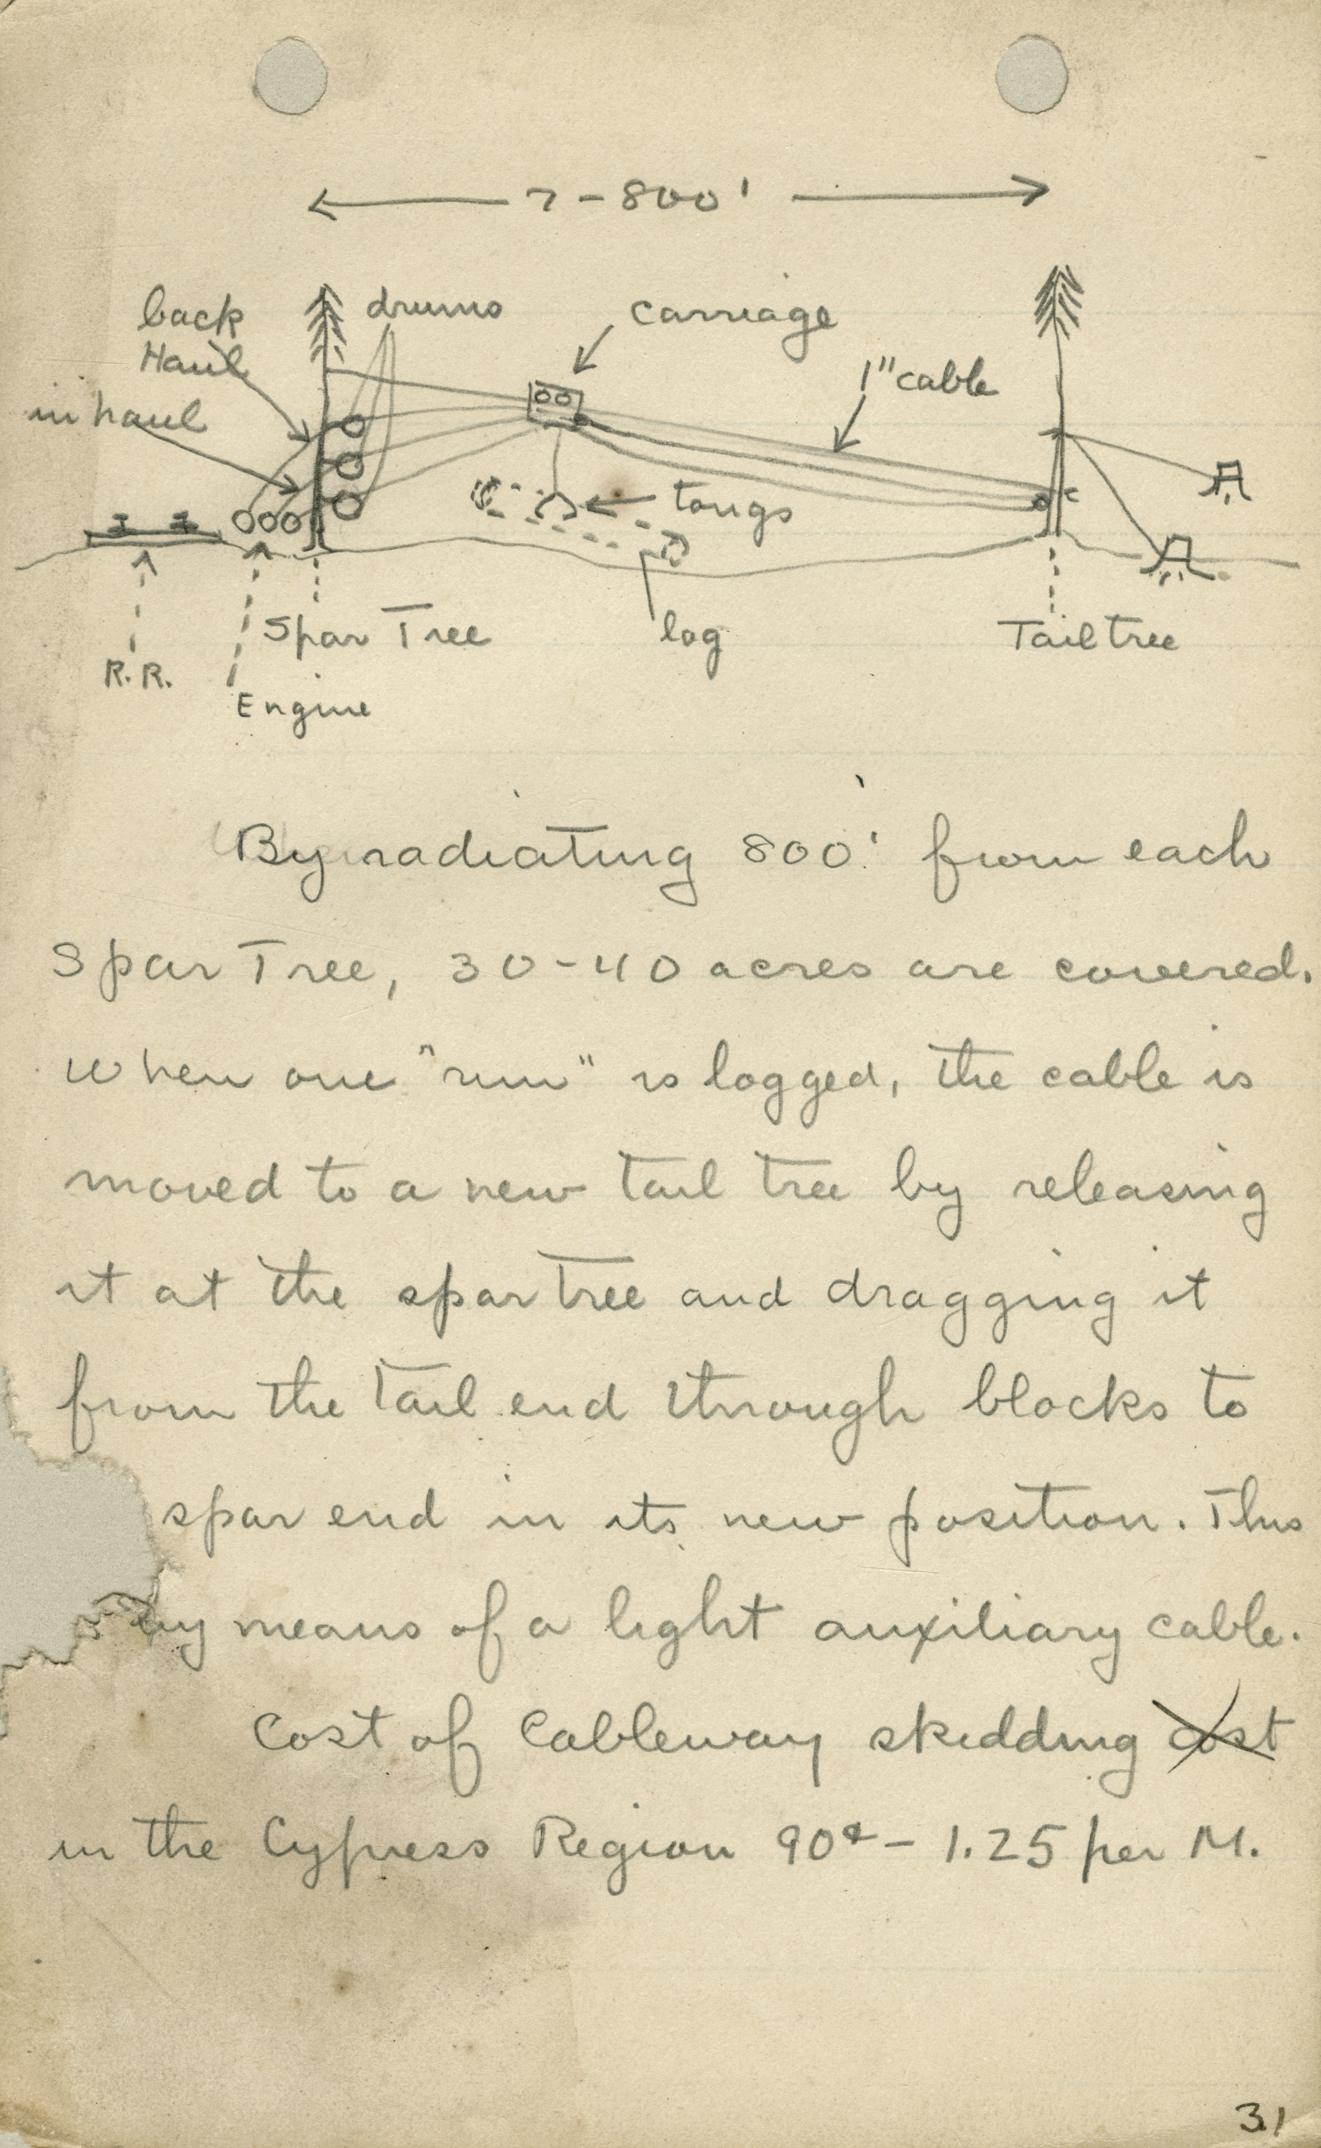 7-800'
back drums carriage
Haul 1" cable
in haul
tongs
Spar Tree log Tail tree
R.R.
Engine
By radiating 800' from each
Spar Tree, 30-40 acres are covered.
When one "run" is logged, the cable is
moved to a new tail tree by releasing
it at the spar tree and dragging it
from the tail end through blocks to
spar end in its new position. This
by means of a light auxiliary cable.
Cost of Cableway skidding cost
in the Cypress Region 90¢ - 1.25 per M.
31